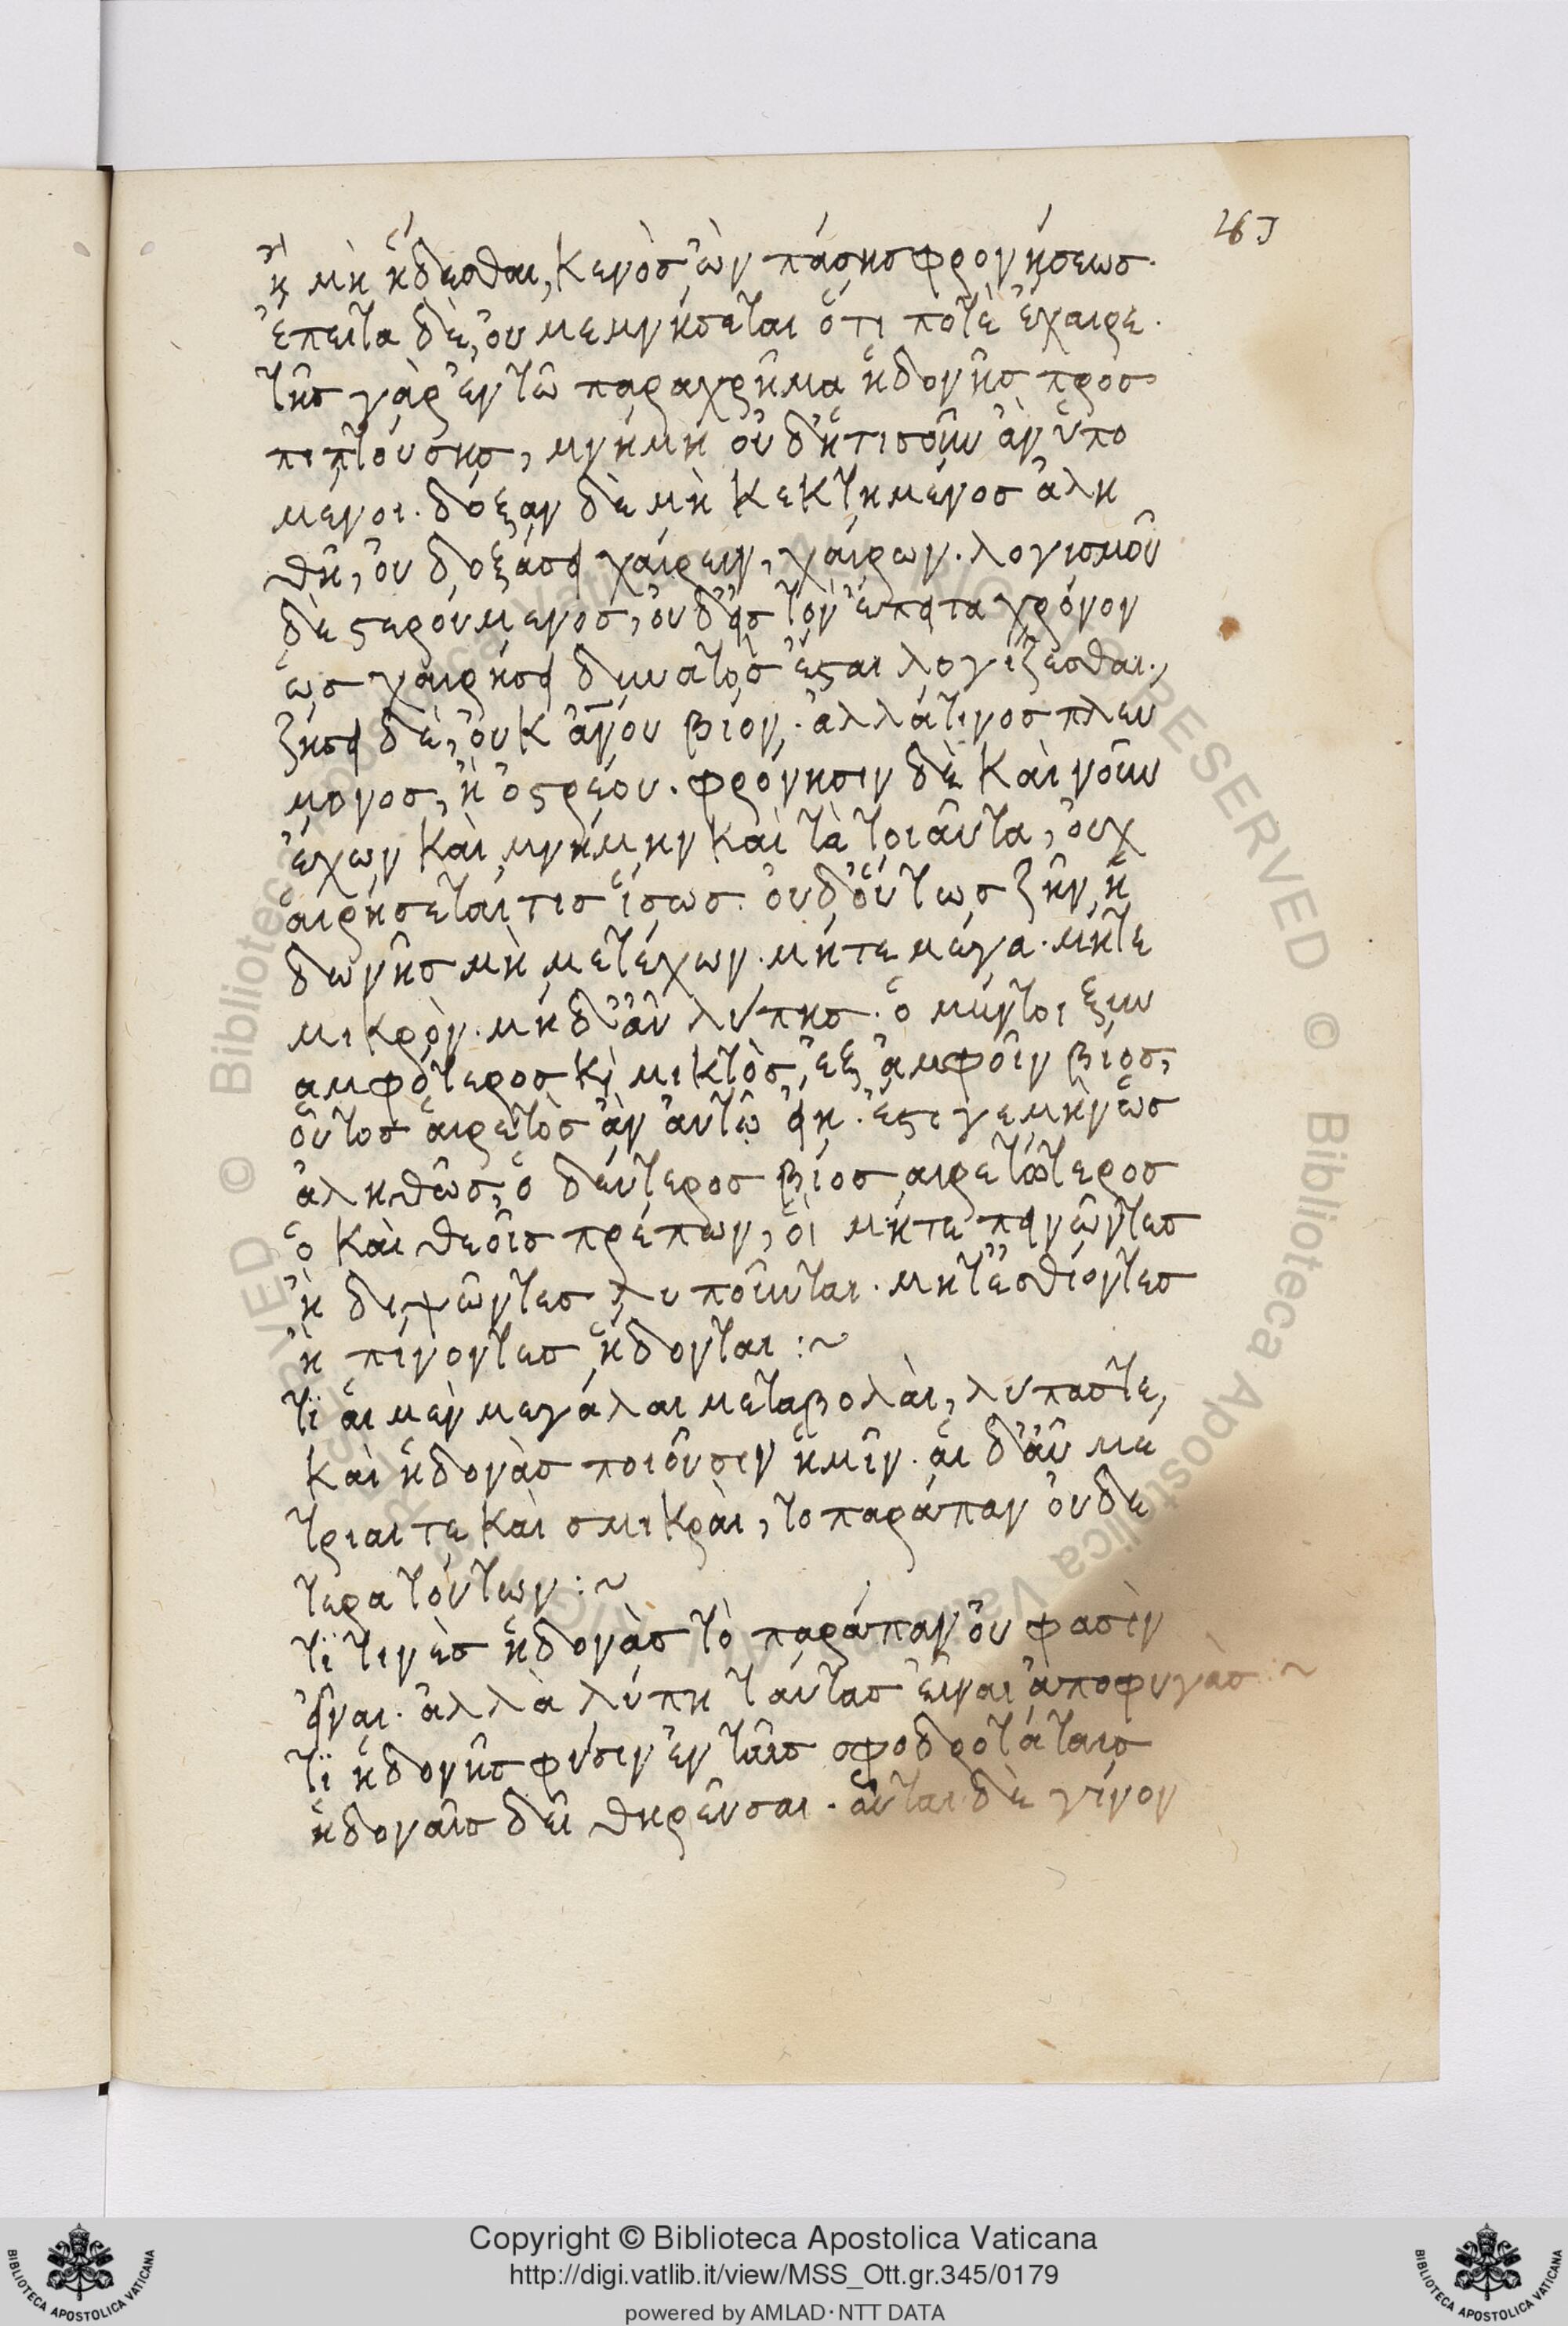 263
ἢ μὴ ἥδεσθαι, κενὸς ὢν πάσης φρονήσεως.
ἔπειτα δὲ, οὐ μεμνήσεται ὅτι ποτὲ ἔχαιρε.
τῆς γὰρ ἐν τῶ παραχρῆμα ἡδονῆς προσ
πιπτούσης, μνήμη οὐδ' ἡτισοῦν ἂν ὑπο
μένοι. δόξαν δὲ μὴ κεκτημένος ἀλη
θῆ, οὐ δοξάσει χαίρειν, χαίρων. λογισμοῦ
δὲ στερούμενος, οὐδ' εἰς τὸν ἔπειτα χρόνον
ὡς χαιρήσει δυνατὸς ἔσται λογίζεσθαι.,
ζήσει δὲ, οὐκ ἀνου βίον. ἀλλά τινος πλευ
μονος, ἢ ὀστρέου. φρόνησιν δὲ καὶ νοῦν
ἔχων καὶ μνήμην καὶ τὰ τοιαῦτα, οὐχ
αἱρήσεταί τις ἴσως οὐδ' οὕτως ζῆν ἡ
δωνῆς μὴ μετέχων. μήτε μέγα. μήτε
μικρόν. μηδ' αὖ λύπης. ὁ μέντοι ξυν
αμφότερος κ μικτὸς, ἐξ ἀμφοῖν βίος,
οὗτος αἱρετὸς ἂν αὐτῶ εἴη. ἔστι γεμὴν ὡς
ἀληθῶς, ὁ δεύτερος βίος αιρετώτερος
ὁ καὶ θεοῖς πρέπων, οἳ μήτε πεινῶντες
ἢ διψῶντες λυποῦνται. μήτ' ἐσθίοντες
ἢ πίνοντες ἥδονται :~
τϊ αἱ μὲν μεγάλαι μεταβολαὶ, λύπας τε,
καὶ ἡδονὰς ποιοῦσιν ἡμῖν. αἱ δ' αὖ με
τριαι τε καὶ σμικραὶ, το παράπαν οὐδε
τερα τούτων :~
τϊ τινὲς ἡδονὰς τὸ παράπαν οὔ φασιν
εἶναι. ἀλλὰ λύπη ταύτας εἶναι ἀποφυγὰς :~
τϊ ἡδονῆς φύσιν ἐν ταῖς σφοδροτάταις
ἡδοναῖς δεῖ θηρεῦσαι. αὗται δὲ γίνον
Copyright © Biblioteca Apostolica Vaticana
http://digi.vatlib.it/view/MSS_Ott.gr.345/0179
powered by AMLAD·NTT DATA